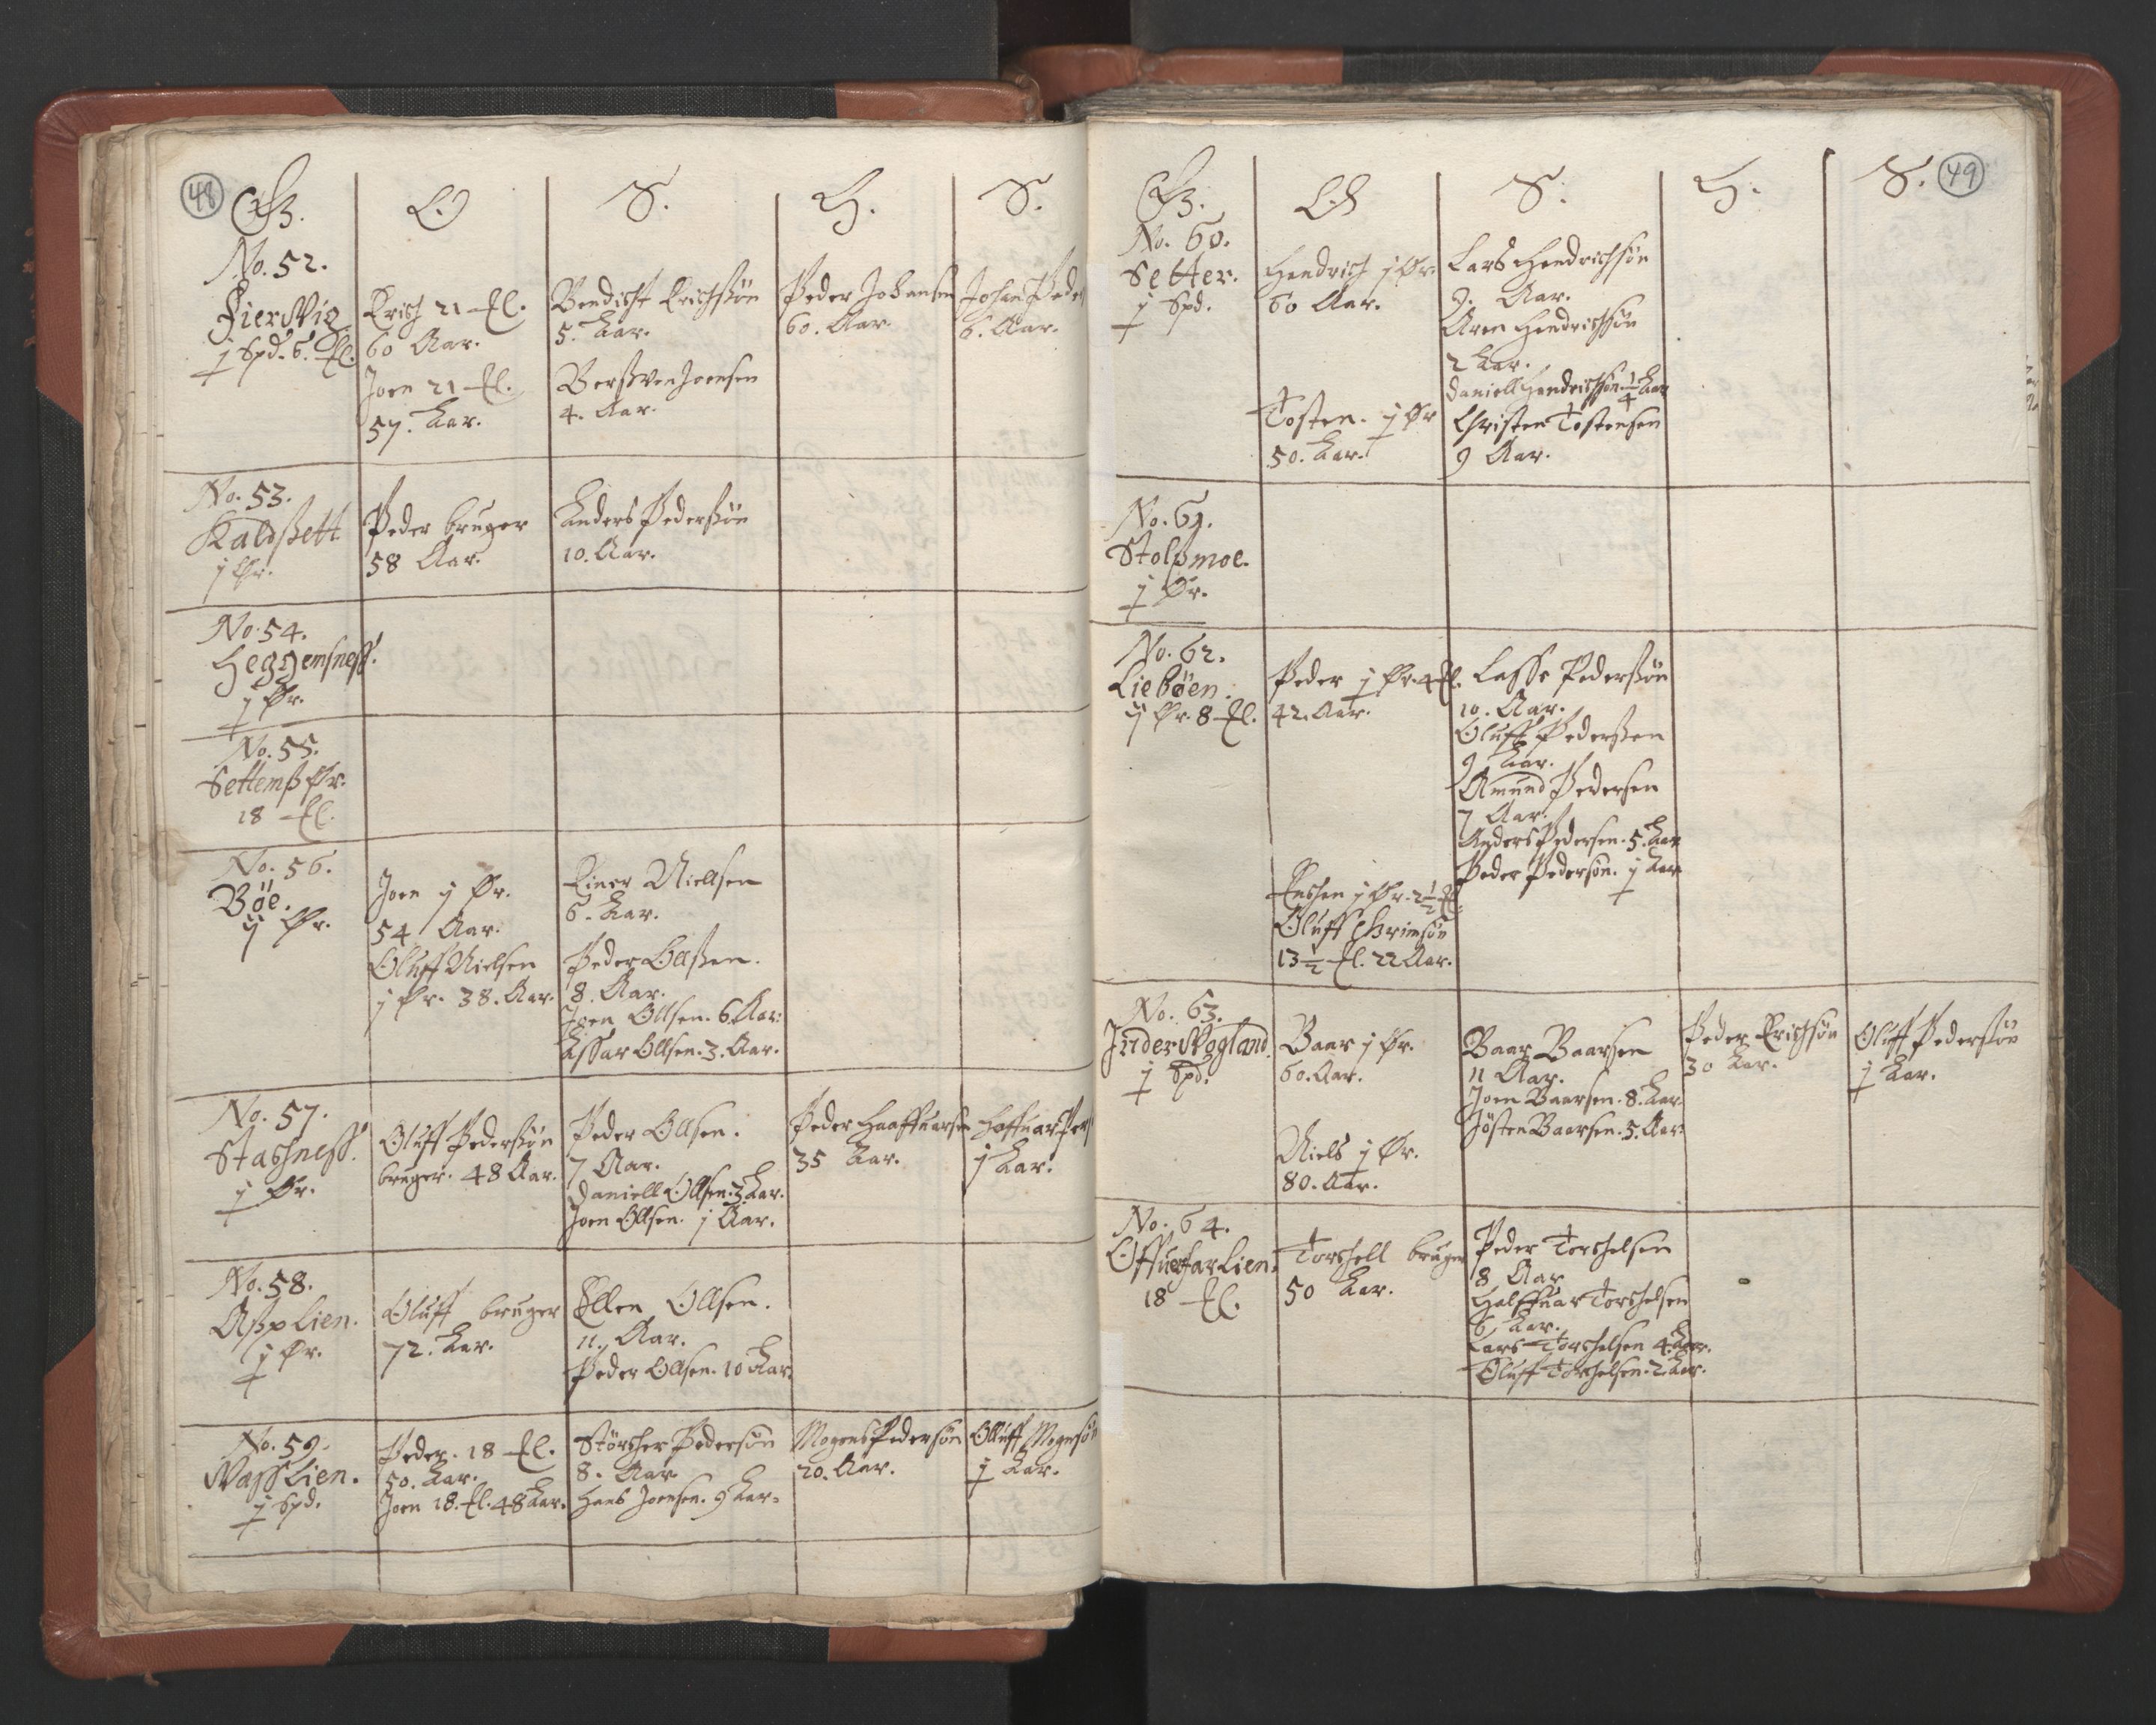 48
No. 52.
Fierwig
j Spd. 6. ℔.
Erich 21 ℔.
60 Aar.
Joen 21 ℔.
57. Aar.
Bendicht Erichsøn
5. Aar.
Joensen
4. Aar.
H.
Peder Johansen
60. Aar.
S.
Johan Peders
6. Aar.
No. 53.
Kaldßett
j Ør.
Peder bruger
58 Aar.
Anders Pederßøn
10. Aar.
No. 54.
Heggemsneß.
j Ør.
No. 55.
Settemß Ør.
18 ℔.
No. 56.
Bøe.
ij Ør.
Joen j Ør.
54 Aar.
Oluff Nielsen
j Ør. 38. Aar.
Einer Nielsen
6. Aar.
Peder Ollßen.
8. Aar.
Joen Ollsen. 6. Aar.
Assar Ollsen. 3. Aar.
No. 57.
Stachneß.
j Ør.
Oluff Pederßøn
bruger. 48 Aar.
Peder Ollsen.
7 Aar.
Daniell Ollsen. 3 Aar.
Joen Ollsen. j Aar.
Peder Haaffuarsen
35 Aar.
Haffuar Pers
j Aar.
No. 58.
Aßplien.
j Ør.
Oluff bruger
72. Aar.
Ellen Ollsen.
11. Aar.
Peder Ollsen. 10 Aar.
No. 59.
Waßlien.
j Spd.
Peder. 18 ℔.
50. Aar.
Joen 18. ℔. 48 Aar.
Størcher Pedersøn
8. Aar
Hans Joensen. 9 Aar.
Mogens Pedersøn
20. Aar.
Olluff Mognsøn
j Aar.
49
No. 60.
Setter.
j Spd.
Hendrich j Ør.
60 Aar.
Tosten. j Ør
50. Aar.
S.
Lars Hendrichsøn
9. Aar.
Aren Hendrichsøn
2 Aar.
Daniell Hendrichsøn. 1/4 Aar
Christen Tostensen
9 Aar.
H.
S.
No. 61.
Stolpmoe.
j Ør.
No. 62.
Liebøen.
ij Ør. 8 ℔.
Peder j Ør. 4 ℔.
42. Aar.
Enchen j Ør. 2 1/2 ℔.
Oluff
13 1/2 ℔. 22 Aar.
Lasse Pederßøn
10. Aar.
Oluff Pederßen
9 Aar.
Amund Pedersen
7 Aar.
Anders Pedersen. 5. Aar
Peder Pedersøn. j Aar
No. 63.
Inder Skogland.
j Spd.
Baar j Ør.
60. Aar.
Niels j Ør.
80. Aar.
Baar Baarsen
11 Aar.
Joen Baarsen. 8. Aar
Jøsten Baarsen. 5. Aar
Peder Erichsøn
30 Aar.
Oluff Pedersøn
j Aar.
No. 64.
Offuerfarlien.
18 ℔.
Torchell bruger
50 Aar.
Peder Torchelsen
8 Aar
Halffuar Torchelsen
6 Aar.
Lars Torchelsen 4 Aar.
Oluff Torchelsen. 2 Aar.